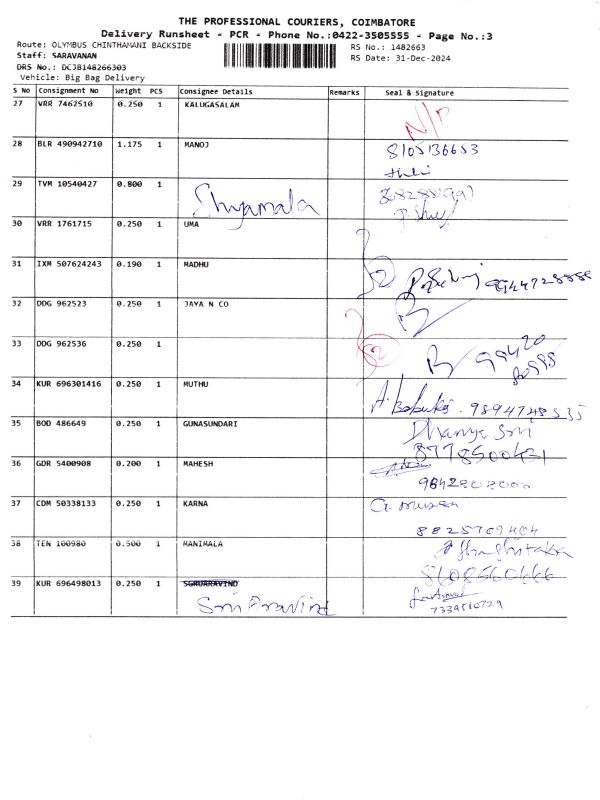 THE PROFESSIONAL COURIERS, COIMBATORE
Delivery Runsheet - PCR - Phone No.:0422-3505555 - Page No.:3
Route: OLYMBUS CHINTHAMANI BACKSIDE
RS No.: 1482663
Staff: SARAVANAN
RS Date: 31-Dec-2024
DRS No.: DCJB148266303
Vehicle: Big Bag Delivery
S No Consignment No Weight PCS Consignee Details Remarks Seal & Signature
27 VRR 7462510 0.250 1 KALUGASALAM
28 BLR 490942710 1.175 1 MANOJ 8105136653
29 TVM 10540427 0.800 1 Shyamala
30 VRR 1761715 0.250 1 UMA
31 IXM 507624243 0.190 1 MADHU 9944728888
32 DDG 962523 0.250 1 JAYA N CO
33 DDG 962536 0.250 1 99420
80998
34 KUR 696301416 0.250 1 MUTHU 9894748535
35 BOD 486649 0.250 1 GUNASUNDARI Dhanya Sri
8778500431
36 GDR 5400908 0.200 1 MAHESH
37 CDM 50338133 0.250 1 KARNA
8825709404
38 TEN 100980 0.500 1 MANIMALA
8608560666
39 KUR 696498013 0.250 1 SGRUARAVIND
Sri Aravind
7339510729